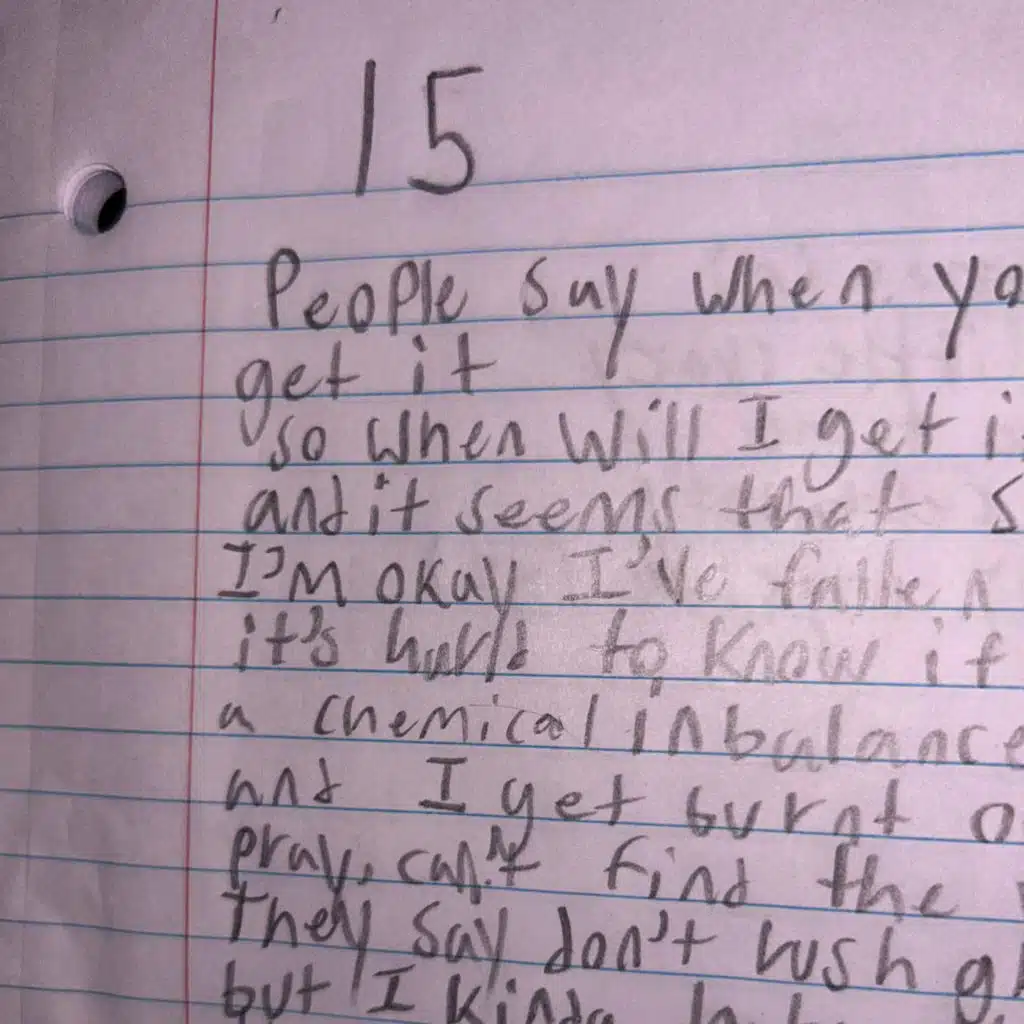 15
People say when yo
get it
so when will I get i
and it seems that s
I'm okay I've fallen
it's hard to know if
a chemical inbalance
and I get burnt o
pray, can't find the
They say don't rush g
but I kinda